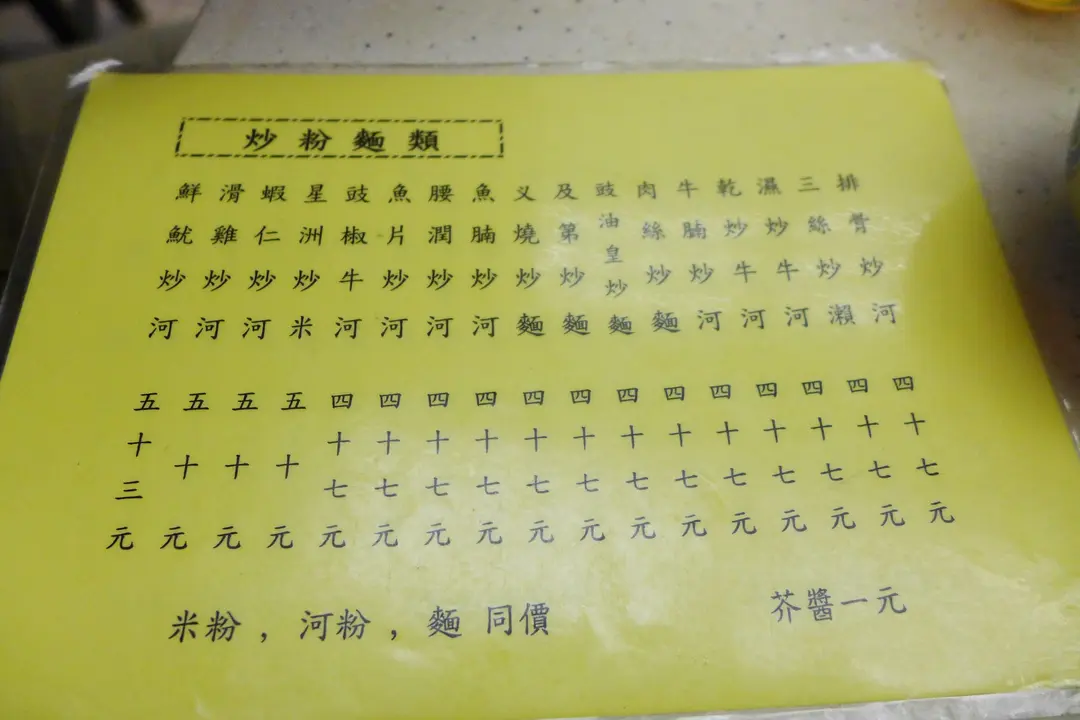 炒粉麵類
排骨炒河 四十七元
三絲炒瀨 四十七元
濕炒牛河 四十七元
乾炒牛河 四十七元
牛腩炒河 四十七元
肉絲炒麵 四十七元
豉油皇炒麵 四十七元
及第炒麵 四十七元
义燒炒麵 四十七元
魚腩炒河 四十七元
腰潤炒河 四十七元
魚片炒河 四十七元
豉椒牛河 四十七元
星洲炒米 五十元
蝦仁炒河 五十元
滑雞炒河 五十元
鮮魷炒河 五十三元
米粉，河粉，麵 同價
芥醬一元